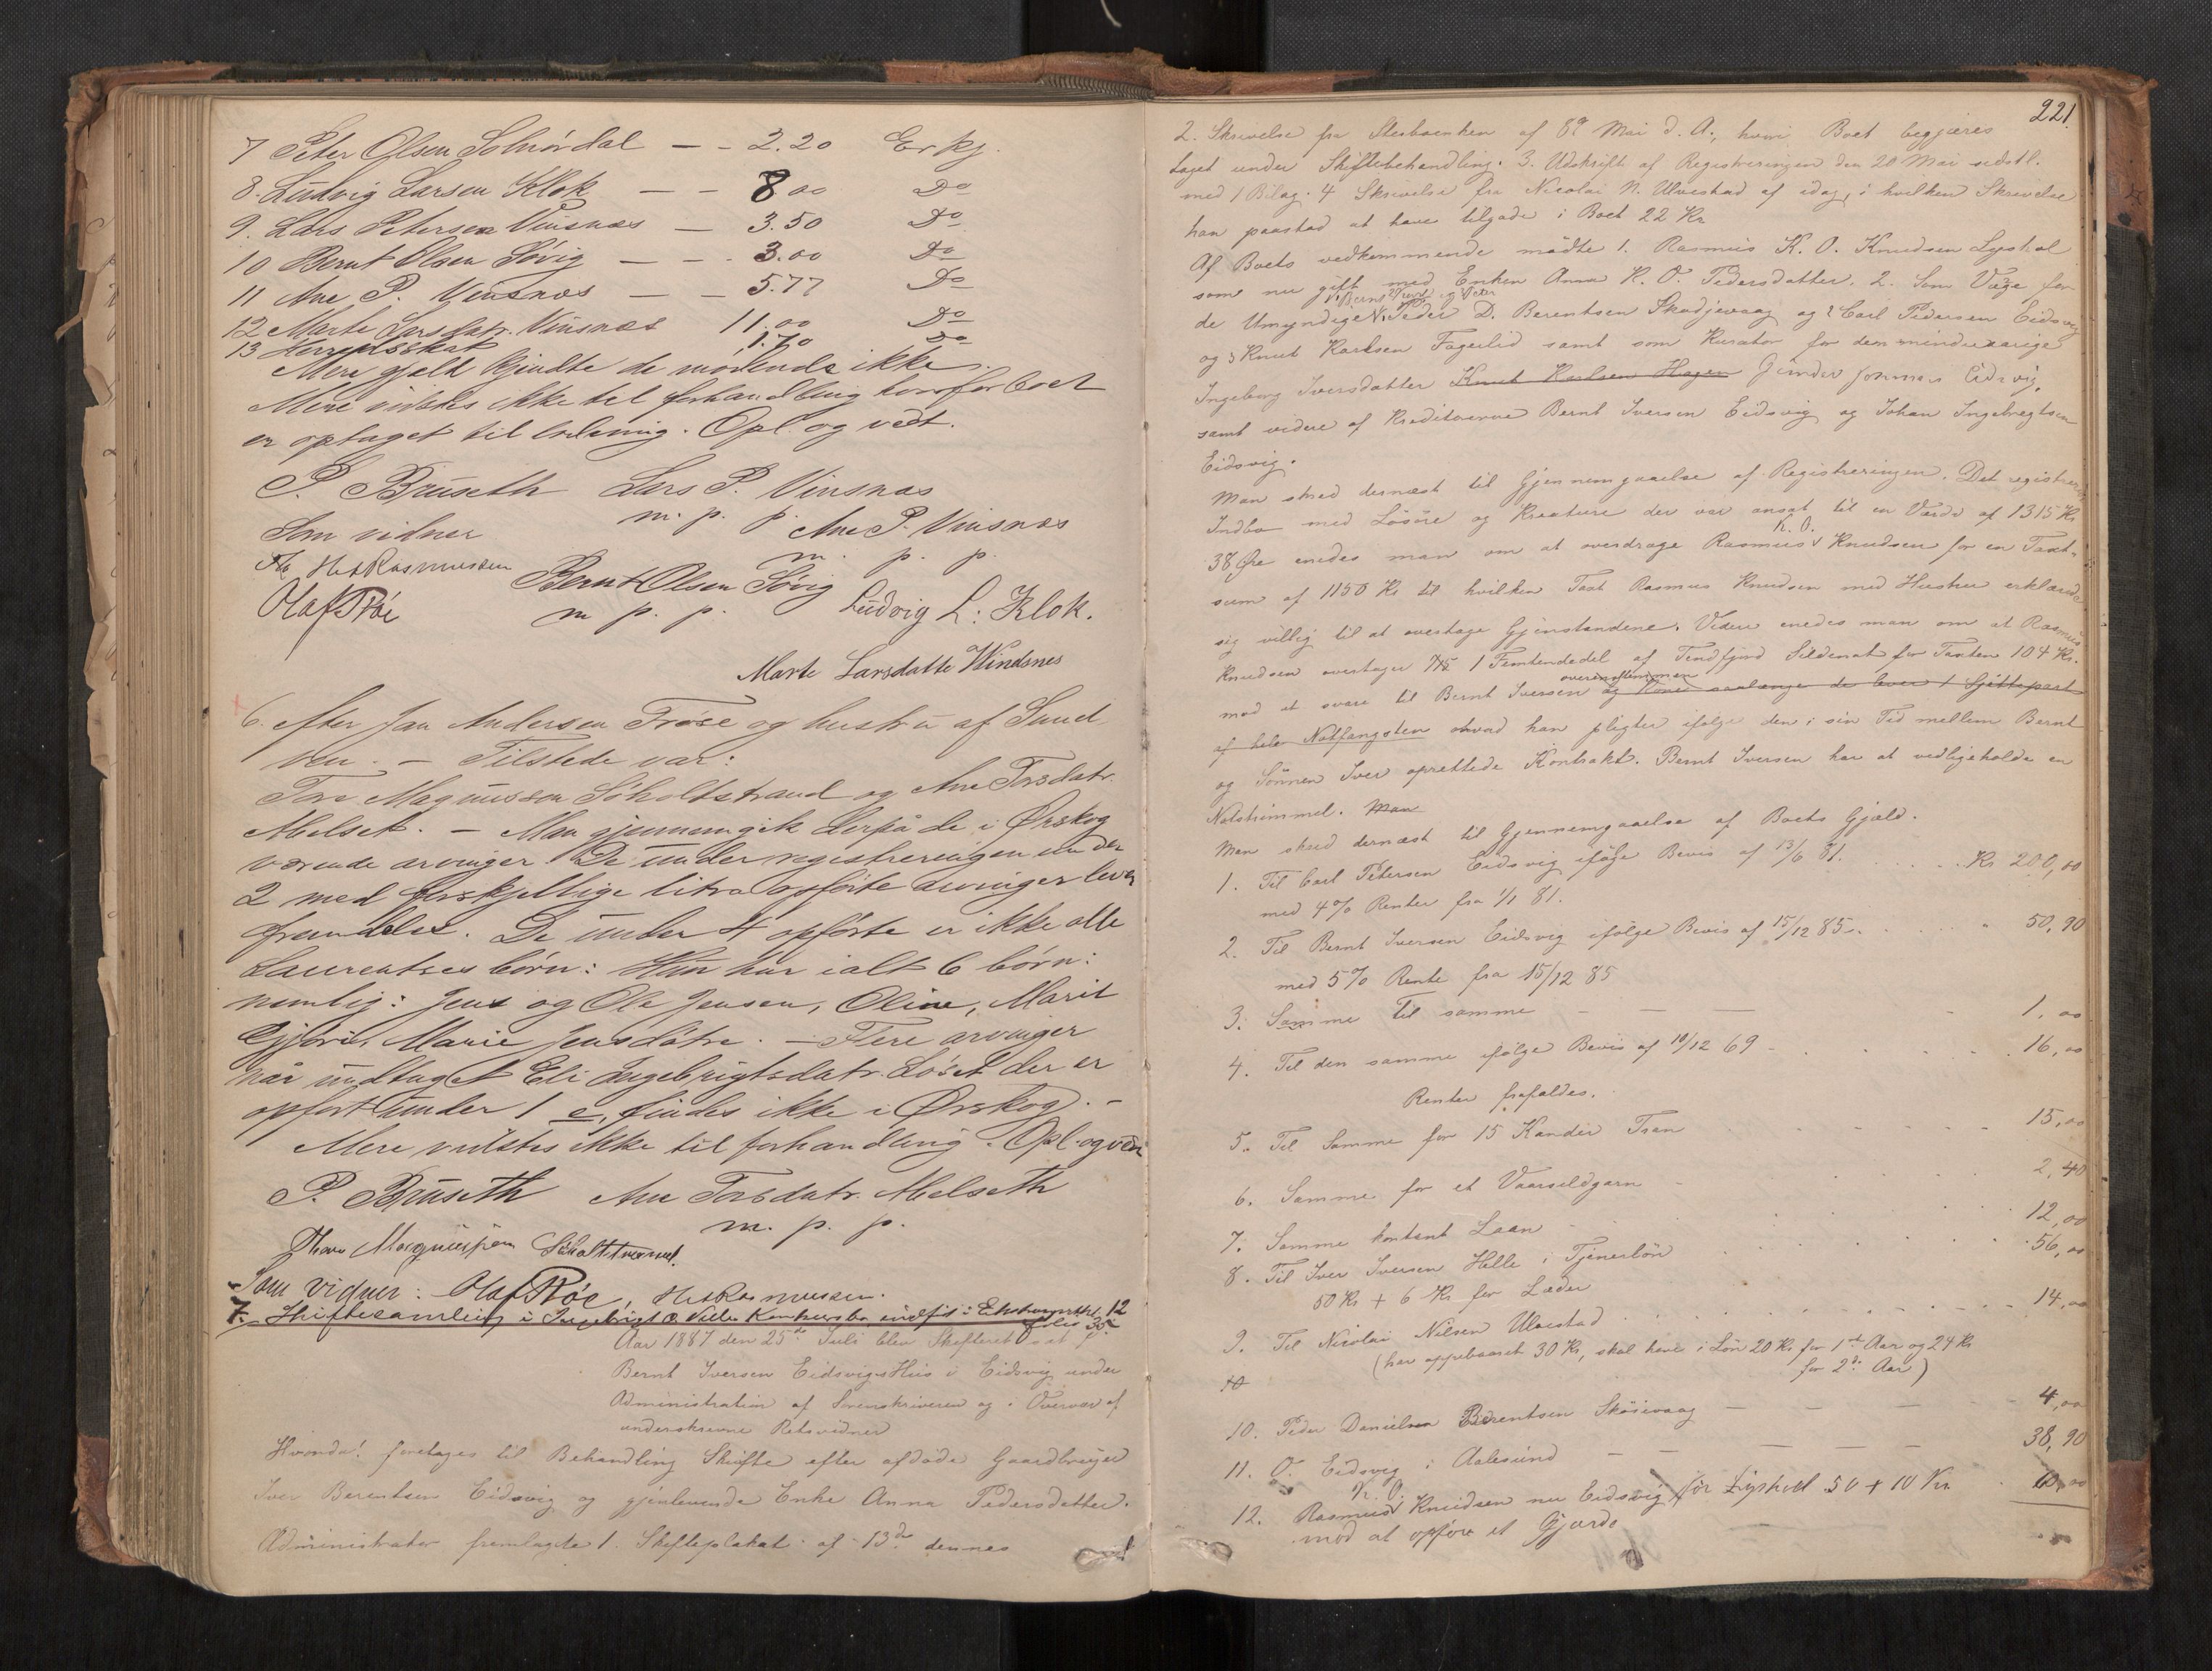 7 Peter Olsen Solnørdal — - 2.20 Erkj.
8. Ludvig Larsen Klok — - 8 00 Do
9. Lars Petersen Vinsnæs — 3.50 Do
10 Bernt Olsen Søvig — - - 3.00 Do
11 Ane P. Vinsnæs — - 5.77 Do
12 Marte Larsdatr. Vinsnæs 11.00 Do
13 Herredsskat 1.70 Do
Mere gjæld kjendte de mødende ikke.
Mere vidstes ikke til forhandling hvorfor boet
er optaget til slutning. Opl. og vedt.
P. Bruseth Lars P. Vinsnæs
m. p. p.
Som vidner Ane P. Vinsnæs
m. p. p.
H Rasmussen Bernt Olsen Søvig
Olaf Røe m. p. p. Ludvig L: Klok.
Marte Larsdatte Windsnes
6. efter Jan Andersen Frøse og hustru af Sund
ven. — Tilstede var:
Tore Magnussen Sjøholtstrand og Ane Torsdatr.
Melset. — Man gjennemgik de på de i Ørskog
værende arvinger. De under registreringen under
2 med forskjellige litra opførte arvinger lever
fremdeles. De under 4 opførte er ikke alle
Laurentses børn: Hun har ialt 6 børn:
nemlig: Jens og Ole Jensen, Oline, Marit
Gjøri, Marie Jensdøtre. — Flere arvinger
når undtaget Eli Ingebrigtsdatr. Løset der er
opført under 1 e, findes ikke i Ørskog. -
Mere vidstes ikke til forhandling. Opl. og ved
P. Bruseth Ane Torsdatr. Melseth
m. p. p.
Thore Magnussen Sjøholtstrand.
Som vidner: Olaf Røe, H Rasmussen.
7. Skiftesamling i Ingebrigt O. Konkursbo indført i 12
folio 35
Aar 1887 den 25de Juli blev Skifteret sat i
Bernt Iversen Eidsvigs Hus i Eidsvig under
Administration af Sorenskriveren og i Overvær af
underskrevne Retsvidner
Hvorda! foretages til Behandling Skifte efter afdøde Gaardbruger
Iver Berentsen Eidsvig og gjenlevende Enke Anna Pedersdatter.
Administrator fremlagde 1. Skifteplakat af 13de dennes
221.
2. Skrivelse fra Stervboenken af 8de Mai d. A., hvori Boet begjæres
taget under Skiftebehandling. 3. Udskrift af Registreringen den 20 Mai sidstl.
med 1 Bilag. 4 Skrivelse fra Nicolai N. Ulvestad af idag, i hvilken Skrivelse
han paastod at have tilgode i Boet 22 Kr
Af Boets vedkommende mødte 1. Rasmus K. O. Knudsen Lyshol
som nu gift med Enken Anna K. O. Pedersdatter. 2. Som Værge for
de Umyndige Peder D. Berentsen Skodjevaag og 2 Carl Pedersen Eidsvig
og 3 Knut Karlsen Fagerlid samt som Kurator for den mindreaarige
Ingeborg Iversdatter Knut Karlsen Hagen Gunder Eidsvig,
samt videre af Kreditorerne Bernt Iversen Eidsvig og Johan Ingebregtsen
Eidsvig.
Man skred dernæst til Gjennemgaaelse af Registreringen. Det registrerede
Indbo med Løsøre og Kreature der var ansat til en Værdi af 1315 Kr
38 Øre enedes man om at overdrage Rasmus K. O. Knudsen for en Taxt-
sum af 1150 Kr til hvilken Taxt Rasmus Knudsen med Hustru erklærede
sig villig til at overtage Gjenstandene. Videre enedes man om at Rasmus
Knudsen overtager 1 Femtendedel af Tendfjord Sildenot for Taxten 104 Kr.
mod at svare til Bernt Iversen overensstemmen og Kone saalænge de lever 1 Sjettepart
af hele Notfangsten hvad han pligter ifølge den i sin Tid mellem Bernt
og Sønnen Iver oprettede Kontrakt. Bernt Iversen har at vedligeholde en
Notstrimmel. Man
Man skred dernæst til Gjennemgaaelse af Boets Gjæld.
1. Til Carl Petersen Eidsvig ifølge Bevis af 13/6 81. . . . . Kr 200,00
med 4% Renter fra 1/1 81.
2. Til Bernt Iversen Eidsvig ifølge Bevis af 15/12 85 . . . . " 50,90
med 5% Rente fra 15/12 85
3. Samme til samme — — — 1,00
4. Til den samme ifølge Bevis af 10/12 69 - . . . . 16,00
Renter frafaldes.
5. Til Samme for 15 Kander Tran - - - - 15,00
6. Samme for et Vaarsildgarn - . . . 2,40
7. Samme kontant Laan - . . . . 12,00
8. Til Iver Iversen Helle i Tjenerløn . . . . 56,00
50 Kr + 6 Kr for Læder
9. Til Nicolai Nilsen Ulvestad . . . . - - - 14,00
(har oppebaaret 30 Kr, skal have i Løn 20 Kr for 1ste Aar og 24 Kr
for 2det Aar)
10
10. Peder Danielsen Berentsen Skoievaag — — — - 4,00
11. O. Eidsvig i Aalesund — — — — - 38,90
12. Rasmus K. O. Knudsen nu Eidsvig før Lyshol 50 + 10 Kr. 60,00
mod at opføre et Gjærde